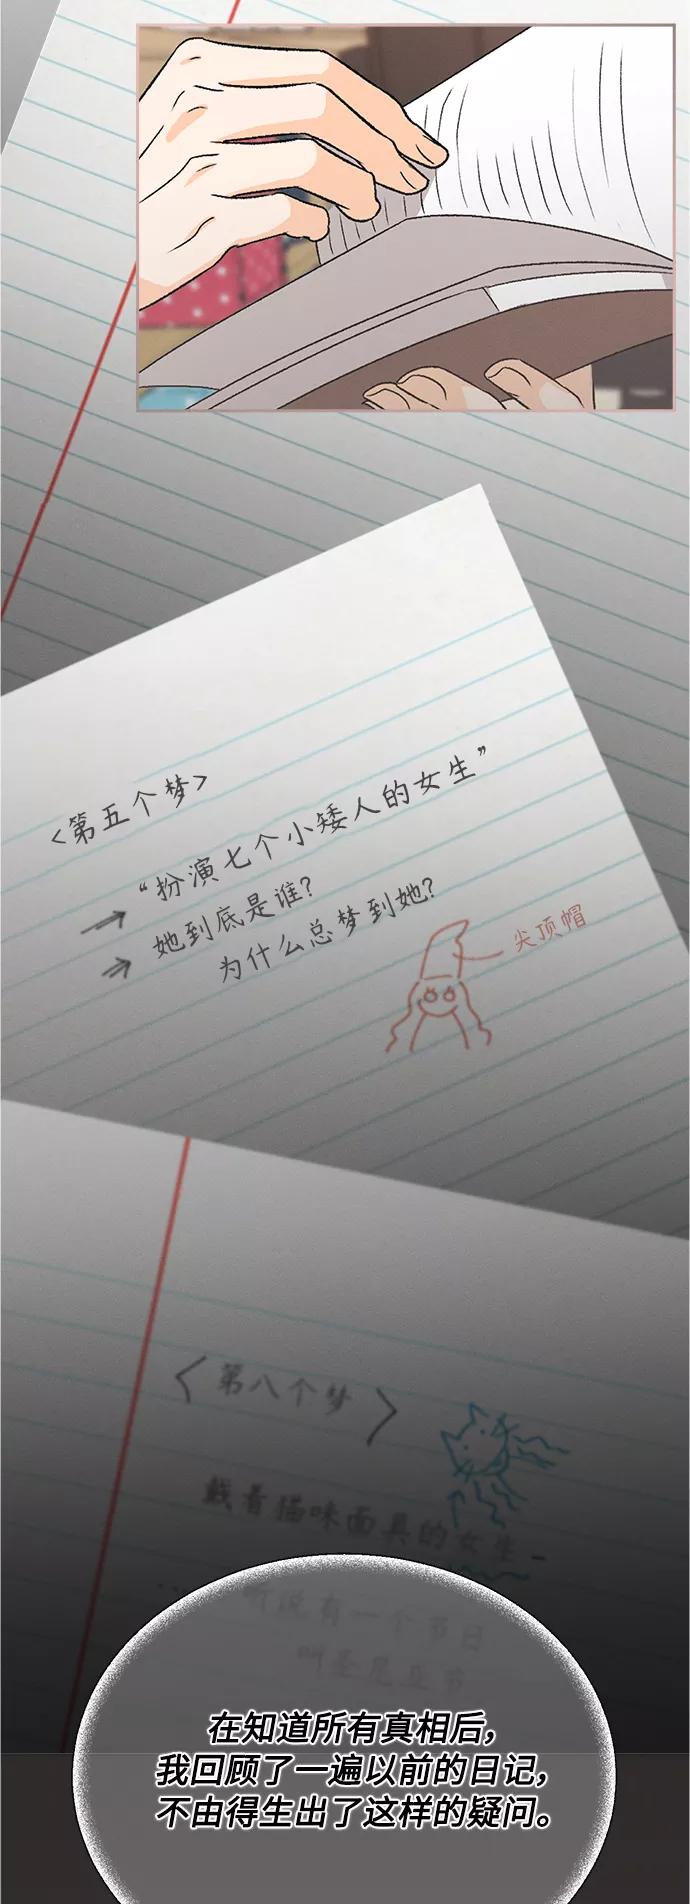 <第五个梦>
“扮演七个小矮人的女生”
她到底是谁？
为什么总梦到她？
尖顶帽
<第八个梦>
戴着猫咪面具的女生-
听说有一个节日
叫圣尼亚节
在知道所有真相后,
我回顾了一遍以前的日记,
不由得生出了这样的疑问。